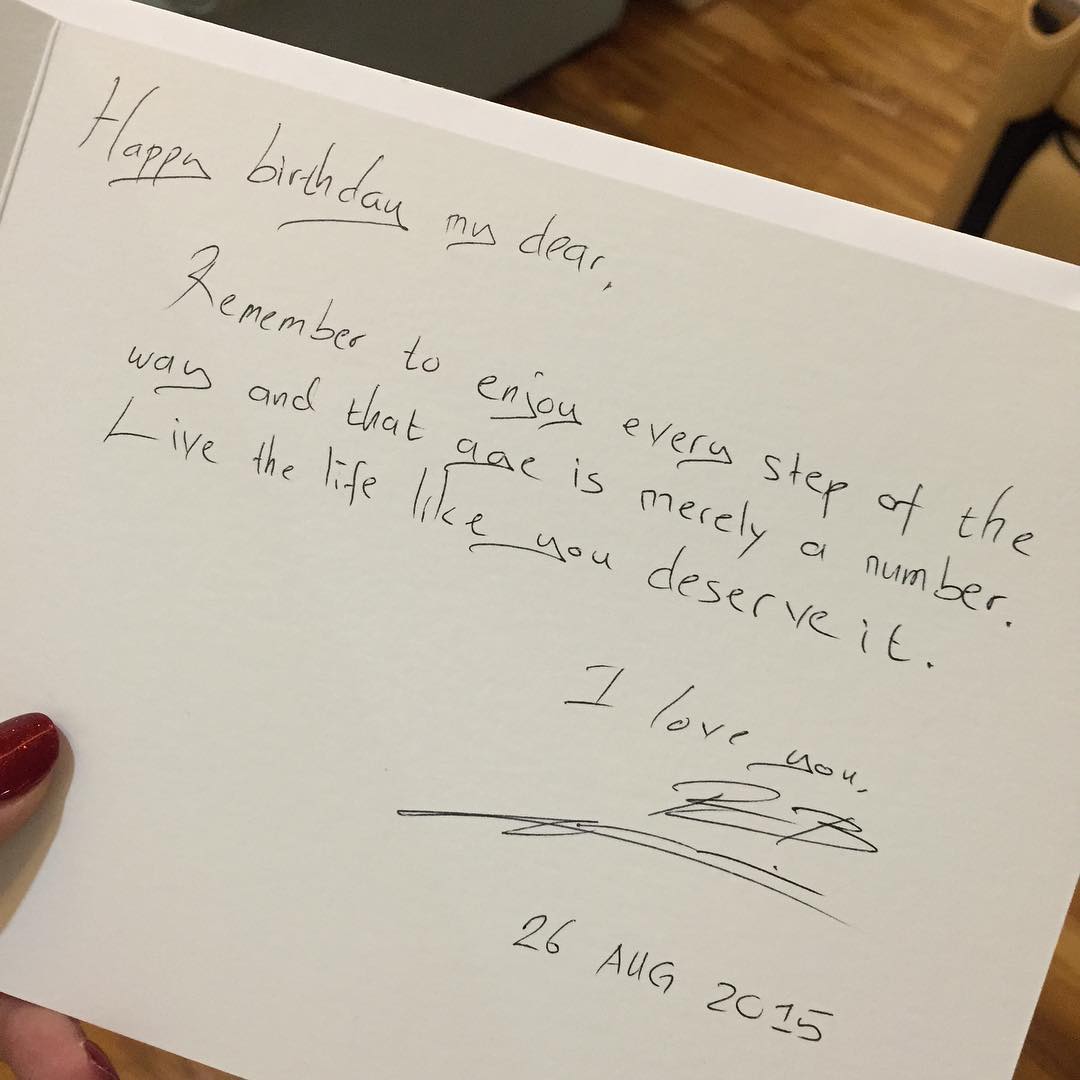 Happy birthday my dear,
Remember to enjoy every step of the
way and that age is merely a number.
Live the life like you deserve it.
I love you,
26 AUG 2015